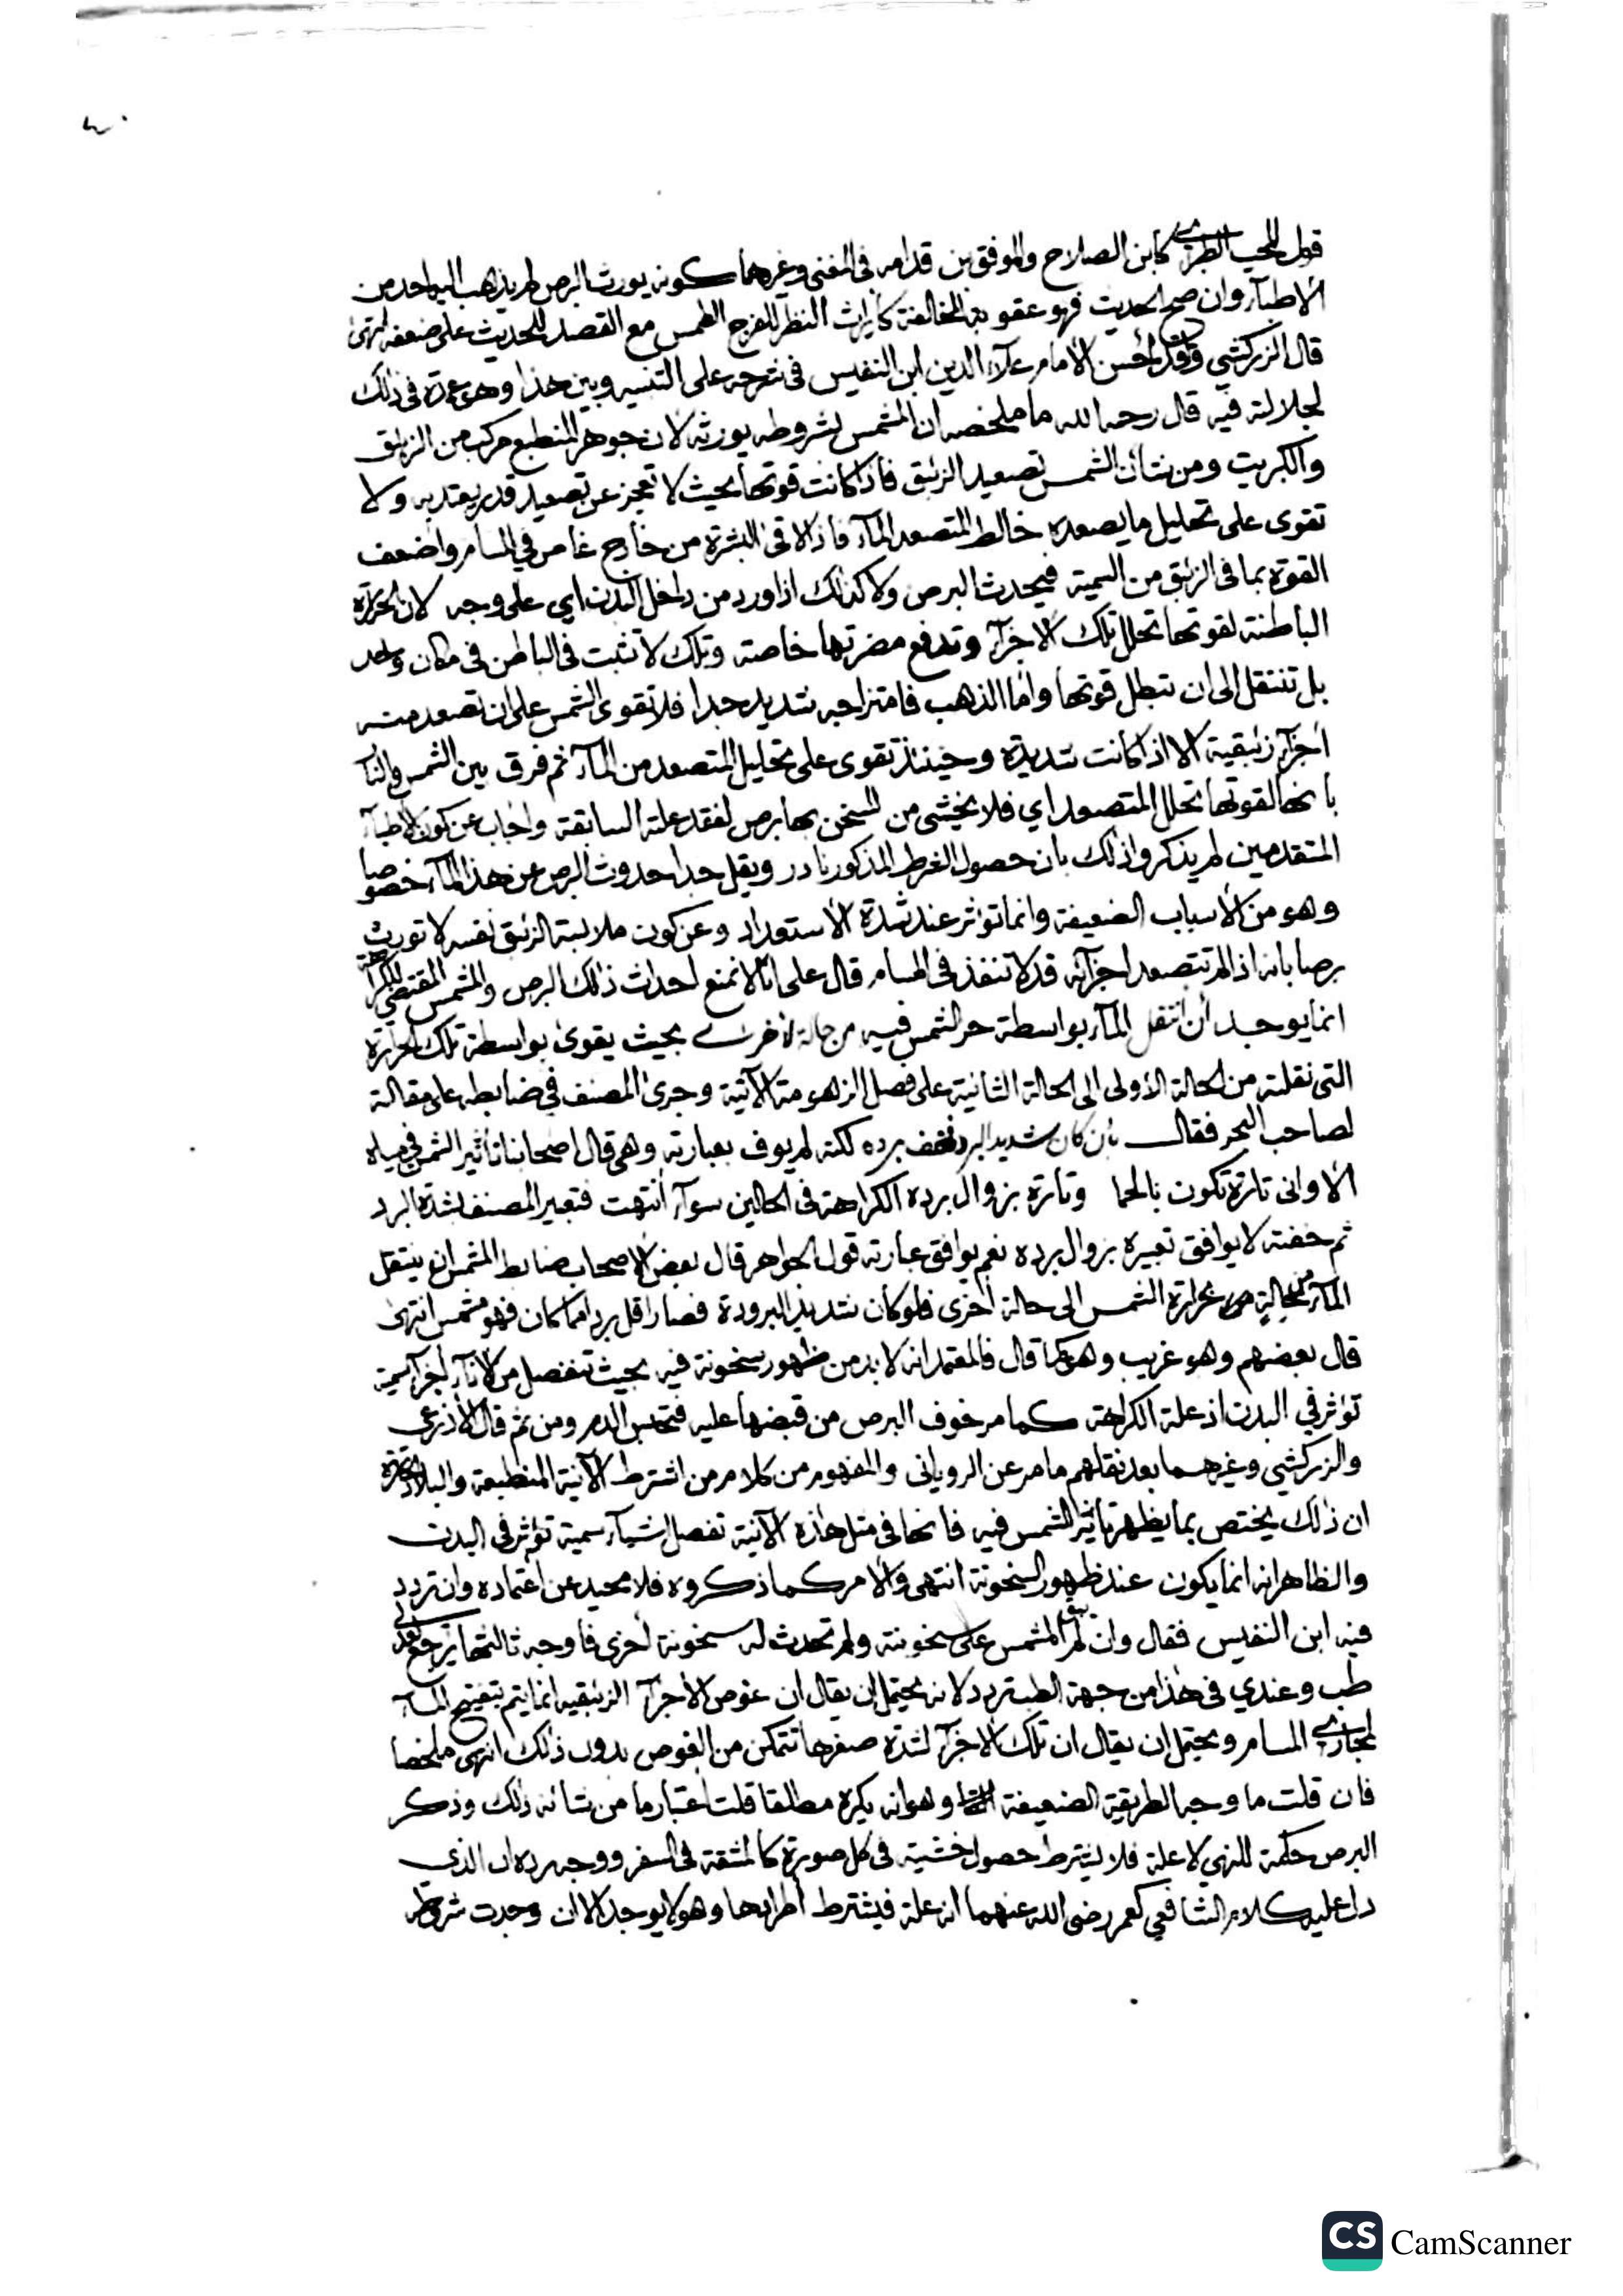 قول المحب الطبري كابن الصلاح والموفق بن قدامه في المغني وغيرهما كونه يورث البرص لم يذهب اليه احد من
الأطباء وان صح الحديث فهو عقوبة المخالفة كايراث النظر للفرج الطمس مع القصد للحديث على ضعفه انتهى
قال الزركشي وقد احسن الامام علاء الدين ابن النفيس في شرحه على التنبيه وبين هذا وهو عمدة في ذلك
لجلالته فيه قال رحمه الله ما ملخصه ان المشمس بشروطه يورثه لان جوهر المنطبع مركب من الزئبق
والكبريت ومن شان الشمس تصعيد الزئبق فاذا كانت قوتها بحيث لا تعجز عن تصعيد قدر يعتد به ولا
تقوى على تحليل ما يصعده خالط المتصعد الماء فاذا لاقى البشرة من خارج غاص في المسام واضعف
القوة بما في الزئبق من السمية فيحدث البرص ولا كذلك اذا ورد من داخل البدن اي على وجه لان الحرارة
الباطنة لقوتها تحلل تلك الاجزاء وتدفع مضرتها خاصة وتلك لا تثبت في الباطن في مكان واحد
بل تنتقل الى ان تبطل قوتها واما الذهب فامتزاجه شديد جدا فلا تقوى الشمس على ان تصعد منه
اجزاء زئبقية الا اذا كانت شديدة وحينئذ تقوى على تحليل المتصعد من الماء ثم فرق بين الشمس والنار
بانها لقوتها تحلل المتصعد اي فلا يخشى من المسخن بها برص لفقد علته السابقة واجاب عن كون الأطباء
المتقدمين لم يذكروا ذلك بان حصول الشرط المذكور نادر ويقل جدا حدوث البرص عن هذا الماء خصوصا
وهو من الأسباب الضعيفة وانما تؤثر عند شدة الاستعداد وعن كون ملابسة الزئبق نفسه لا تورث
برصا بانه اذا لم تتصعد اجزائه قد لا تنفذ في المسام قال على انا لا نمنع احداث ذلك البرص والمشمس المقتضي للكراهة
انما يوجد أن انتقل الماء بواسطة حر الشمس فيه من حالة لاخرى بحيث يقوى بواسطة تلك الحرارة
التي نقلته من الحالة الأولى الى الحالة الثانية على فصل الزهومة الآتية وجرى المصنف في ضابطه على مقالة
لصاحب البحر فقال بأن كان شديد البرد فخف برده لكنه لم يوف بعبارته وهي قال اصحابنا تأثير الشمس في مياه
الأواني تارة تكون بالحما وتارة بزوال برده الكراهة في الحالين سوآء انتهت فتعبير المصنف بشدة البرد
ثم خفته لا يوافق تعبيره بزوال برده نعم يوافق عبارته قول الجواهر قال بعض الاصحاب ضابط المشمس ان ينتقل
الماء من حالة بحرارة الشمس الى حالة أخرى فلو كان شديد البرودة فصار اقل برد مما كان فهو مشمس انتهى
قال بعضهم وهو غريب وهو كما قال فالمعتمد انه لا بد من ظهور سخونة فيه بحيث تنفصل من الاناء اجزاء سمية
تؤثر في البدن اذ علة الكراهة كما مر خوف البرص من قبضها عليه فتحبس الدم ومن ثم قال الأذرعي
والزركشي وغيرهما بعد نقلهم ما مر عن الروياني والمفهوم من كلام من اشترط الآنية المنطبعة والبلاد الحارة
ان ذلك يختص بما يظهر تاثير الشمس فيه فانها في مثل هذه الآنية تفصل اشياء سمية تؤثر في البدن
والظاهر انه انما يكون عند ظهور السخونة انتهى والامر كما ذكروه فلا محيد عن اعتماده وان تردد
فيه ابن النفيس فقال وان لم يبق المشمس على سخونته ولم تحدث له سخونة أخرى فاوجه ثالثها يرجع الى
طب وعندي في هذا من جهة الطب تردد لانه يحتمل ان يقال ان غوص الاجزاء الزئبقيه انما يتم بتفتيح الماء
لمجاري المسام ويحتمل ان يقال ان تلك الاجزاء لشدة صغرها تتمكن من الغوص بدون ذلك انتهى ملخصا
فان قلت ما وجه الطريقة الضعيفة وهو انه يكره مطلقا قلت اعتبار ما من شانه ذلك وذكر
البرص حكمة للنهي لا علة فلا يشترط حصول خشيته في كل صورة كالمشقة في السفر ووجه رده ان الذي
دل عليه كلام الشافعي كعمر رضي الله عنهما انه علة فيشترط اطرادها وهو لا يوجد الا ان وجدت شروطه
CS CamScanner